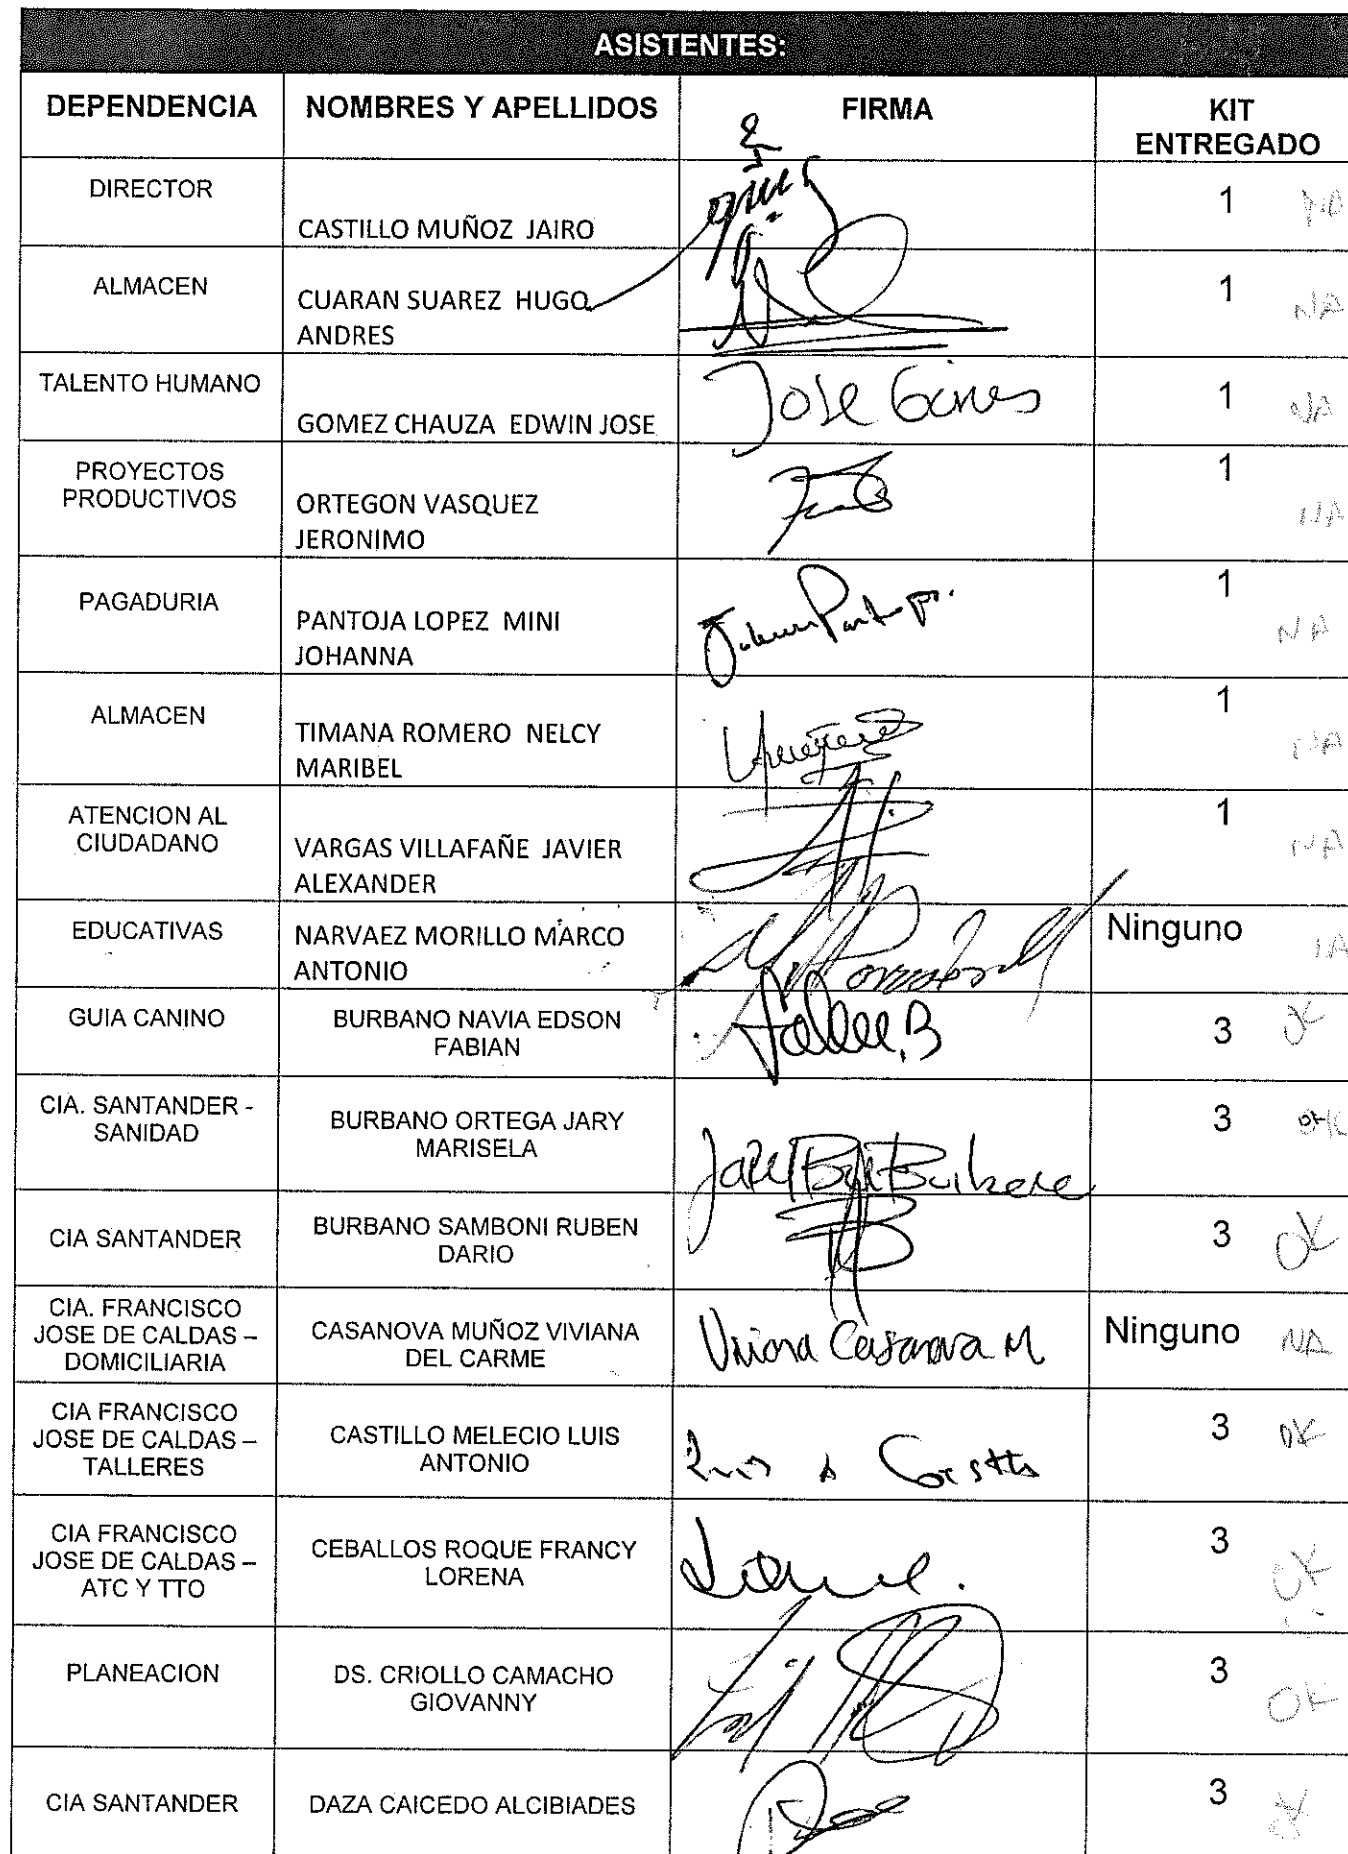 ASISTENTES:
DEPENDENCIA NOMBRES Y APELLIDOS FIRMA KIT
ENTREGADO
DIRECTOR
CASTILLO MUÑOZ JAIRO 1
ALMACEN
CUARAN SUAREZ HUGO
ANDRES 1 NA
TALENTO HUMANO
GOMEZ CHAUZA EDWIN JOSE Jose 1 NA
PROYECTOS
PRODUCTIVOS
ORTEGON VASQUEZ
JERONIMO 1 NA
PAGADURIA
PANTOJA LOPEZ MINI
JOHANNA 1 NA
ALMACEN
TIMANA ROMERO NELCY
MARIBEL 1 NA
ATENCION AL
CIUDADANO
VARGAS VILLAFAÑE JAVIER
ALEXANDER 1 NA
EDUCATIVAS
NARVAEZ MORILLO MARCO
ANTONIO Ninguno
GUIA CANINO
BURBANO NAVIA EDSON
FABIAN 3 OK
CIA. SANTANDER -
SANIDAD
BURBANO ORTEGA JARY
MARISELA 3 OK
CIA SANTANDER
BURBANO SAMBONI RUBEN
DARIO 3 OK
CIA. FRANCISCO
JOSE DE CALDAS –
DOMICILIARIA
CASANOVA MUÑOZ VIVIANA
DEL CARME Viviana Casanova M Ninguno NA
CIA FRANCISCO
JOSE DE CALDAS –
TALLERES
CASTILLO MELECIO LUIS
ANTONIO 3 OK
CIA FRANCISCO
JOSE DE CALDAS –
ATC Y TTO
CEBALLOS ROQUE FRANCY
LORENA 3 OK
PLANEACION
DS. CRIOLLO CAMACHO
GIOVANNY 3 OK
CIA SANTANDER
DAZA CAICEDO ALCIBIADES 3 OK